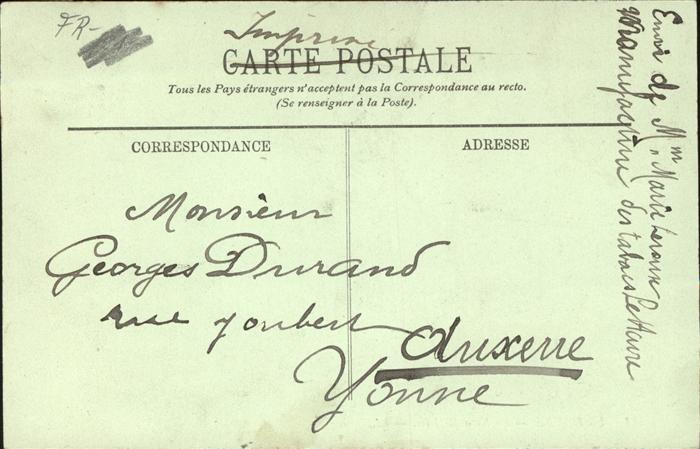 FR-
Imprimé
CARTE POSTALE
Tous les Pays étrangers n'acceptent pas la Correspondance au recto.
(Se renseigner à la Poste).
CORRESPONDANCE
ADRESSE
Monsieur
Georges Durand
rue Joubert
Auxerre
Yonne
Envoi de Mme Marie Leroux
Manufacture des tabacs Le Havre